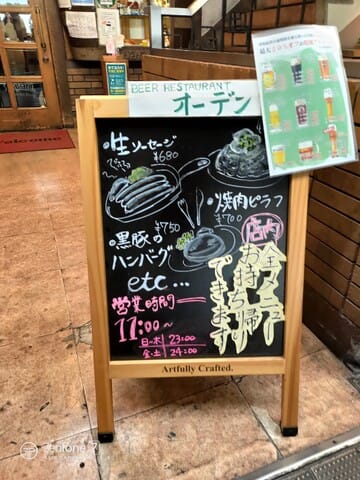 BEER RESTAURANT
オーデン
・生ソーセージ
¥680
・焼肉ピラフ
¥700
・黒豚の
ハンバーグ
¥750
etc...
店内全メニュー
お持ち帰り
できます
営業時間
11:00~
日~木 23:00
金・土 24:00
Artfully Crafted.
Welcome